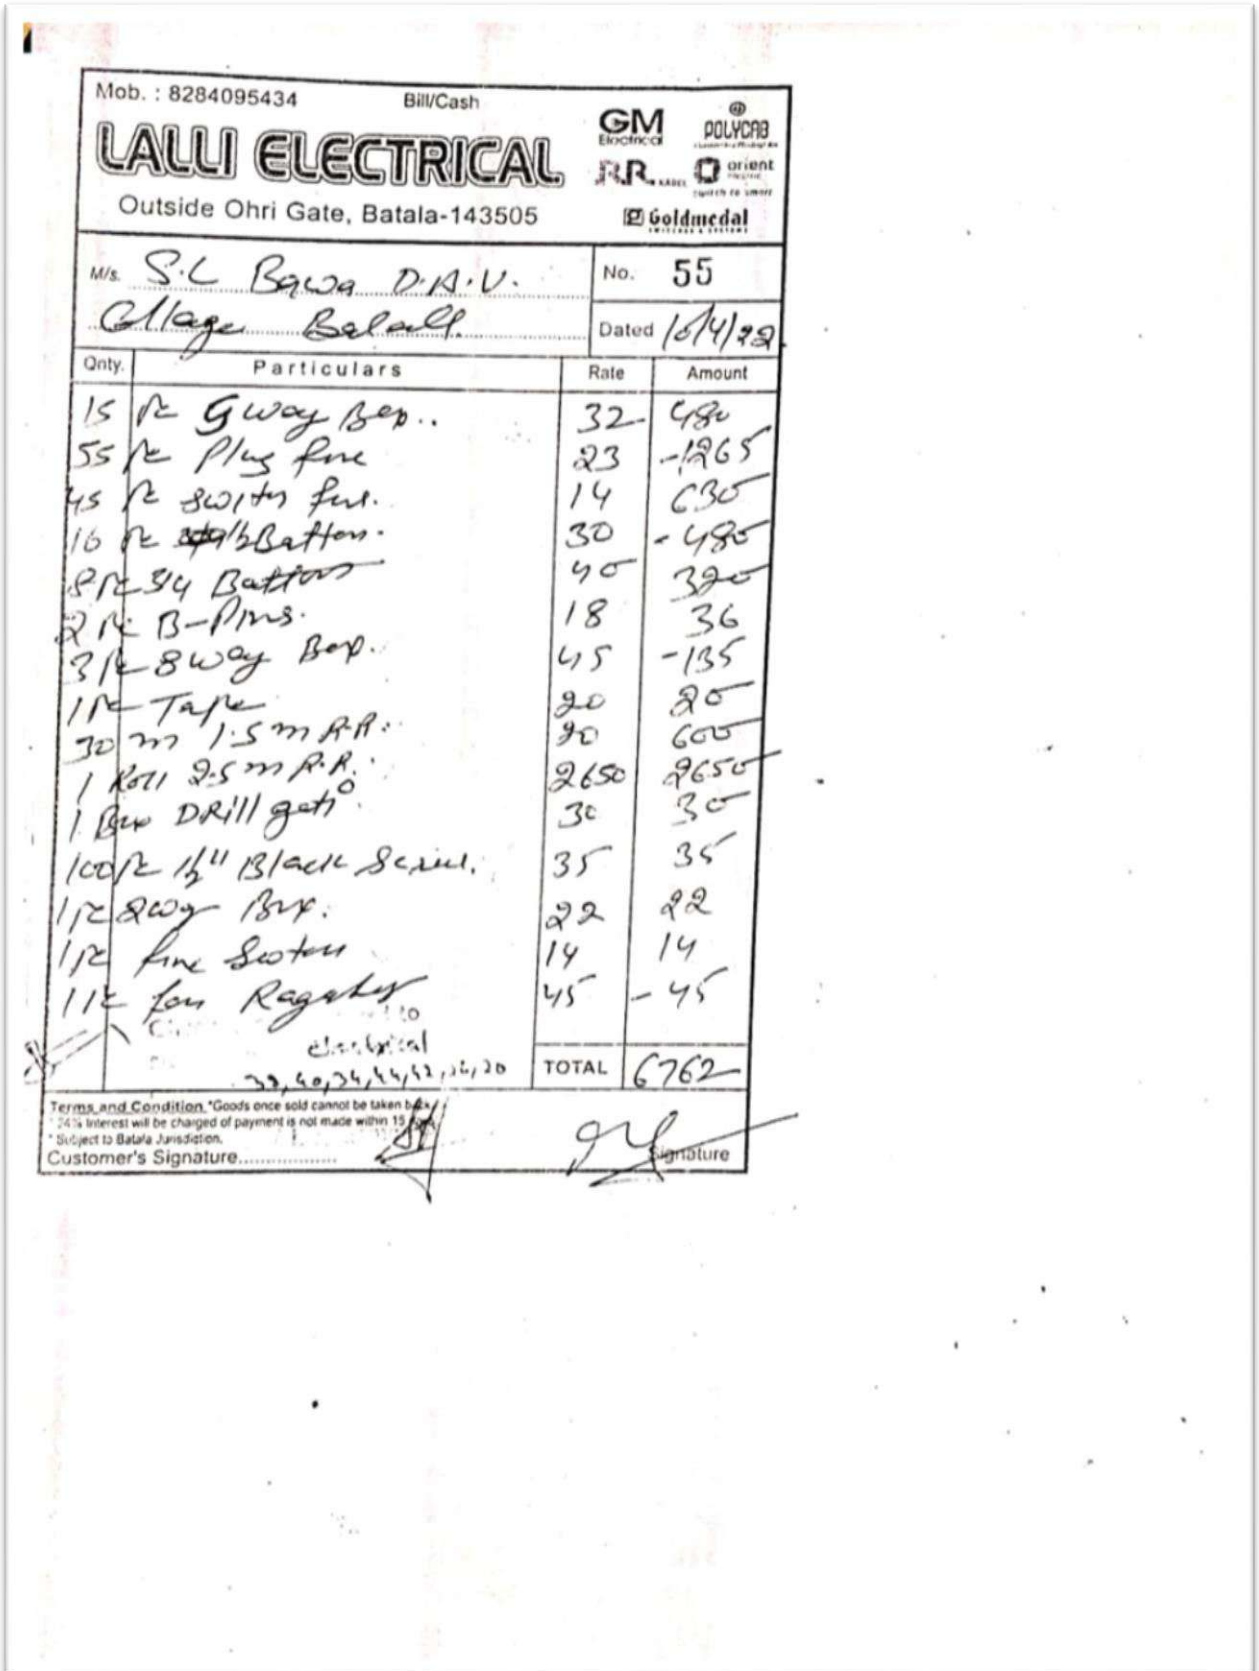 Mob. : 8284095434 Bill/Cash
LALLI ELECTRICAL
Outside Ohri Gate, Batala-143505
GM Electrical
POLYCAB
RR KABEL
orient
switch to smart
Goldmedal
SWITCHES & SYSTEMS
M/s. S.L Bawa D.A.V.
College
No. 55
Dated 10/4/22
Qnty. Particulars Rate Amount
15 Pc way Box.. 32 480
55 Pc Plug 23 -1265
45 Pc 14 630
16 Pc 1/2 Batton. 30 - 480
8 Pc 3/4 Batton 40 320
2 Pc B-Pins. 18 36
3 Pc 8 way Box. 45 -135
1 Pc Tape 20 20
30 m 1.5 m R.R. 20 600
1 Roll 2.5 m R.R. 2650 2650
1 Box DRill 30 30
100 Pc 1/2" Black 35 35
1 Pc 2 way Box. 22 22
1 Pc 14 14
1 Pc fan 45 - 45
to
electrical
TOTAL 6762
Terms and Condition *Goods once sold cannot be taken back
* 24% Interest will be charged of payment is not made within 15
* Subject to Batala Jurisdiction.
Customer's Signature.................. Signature